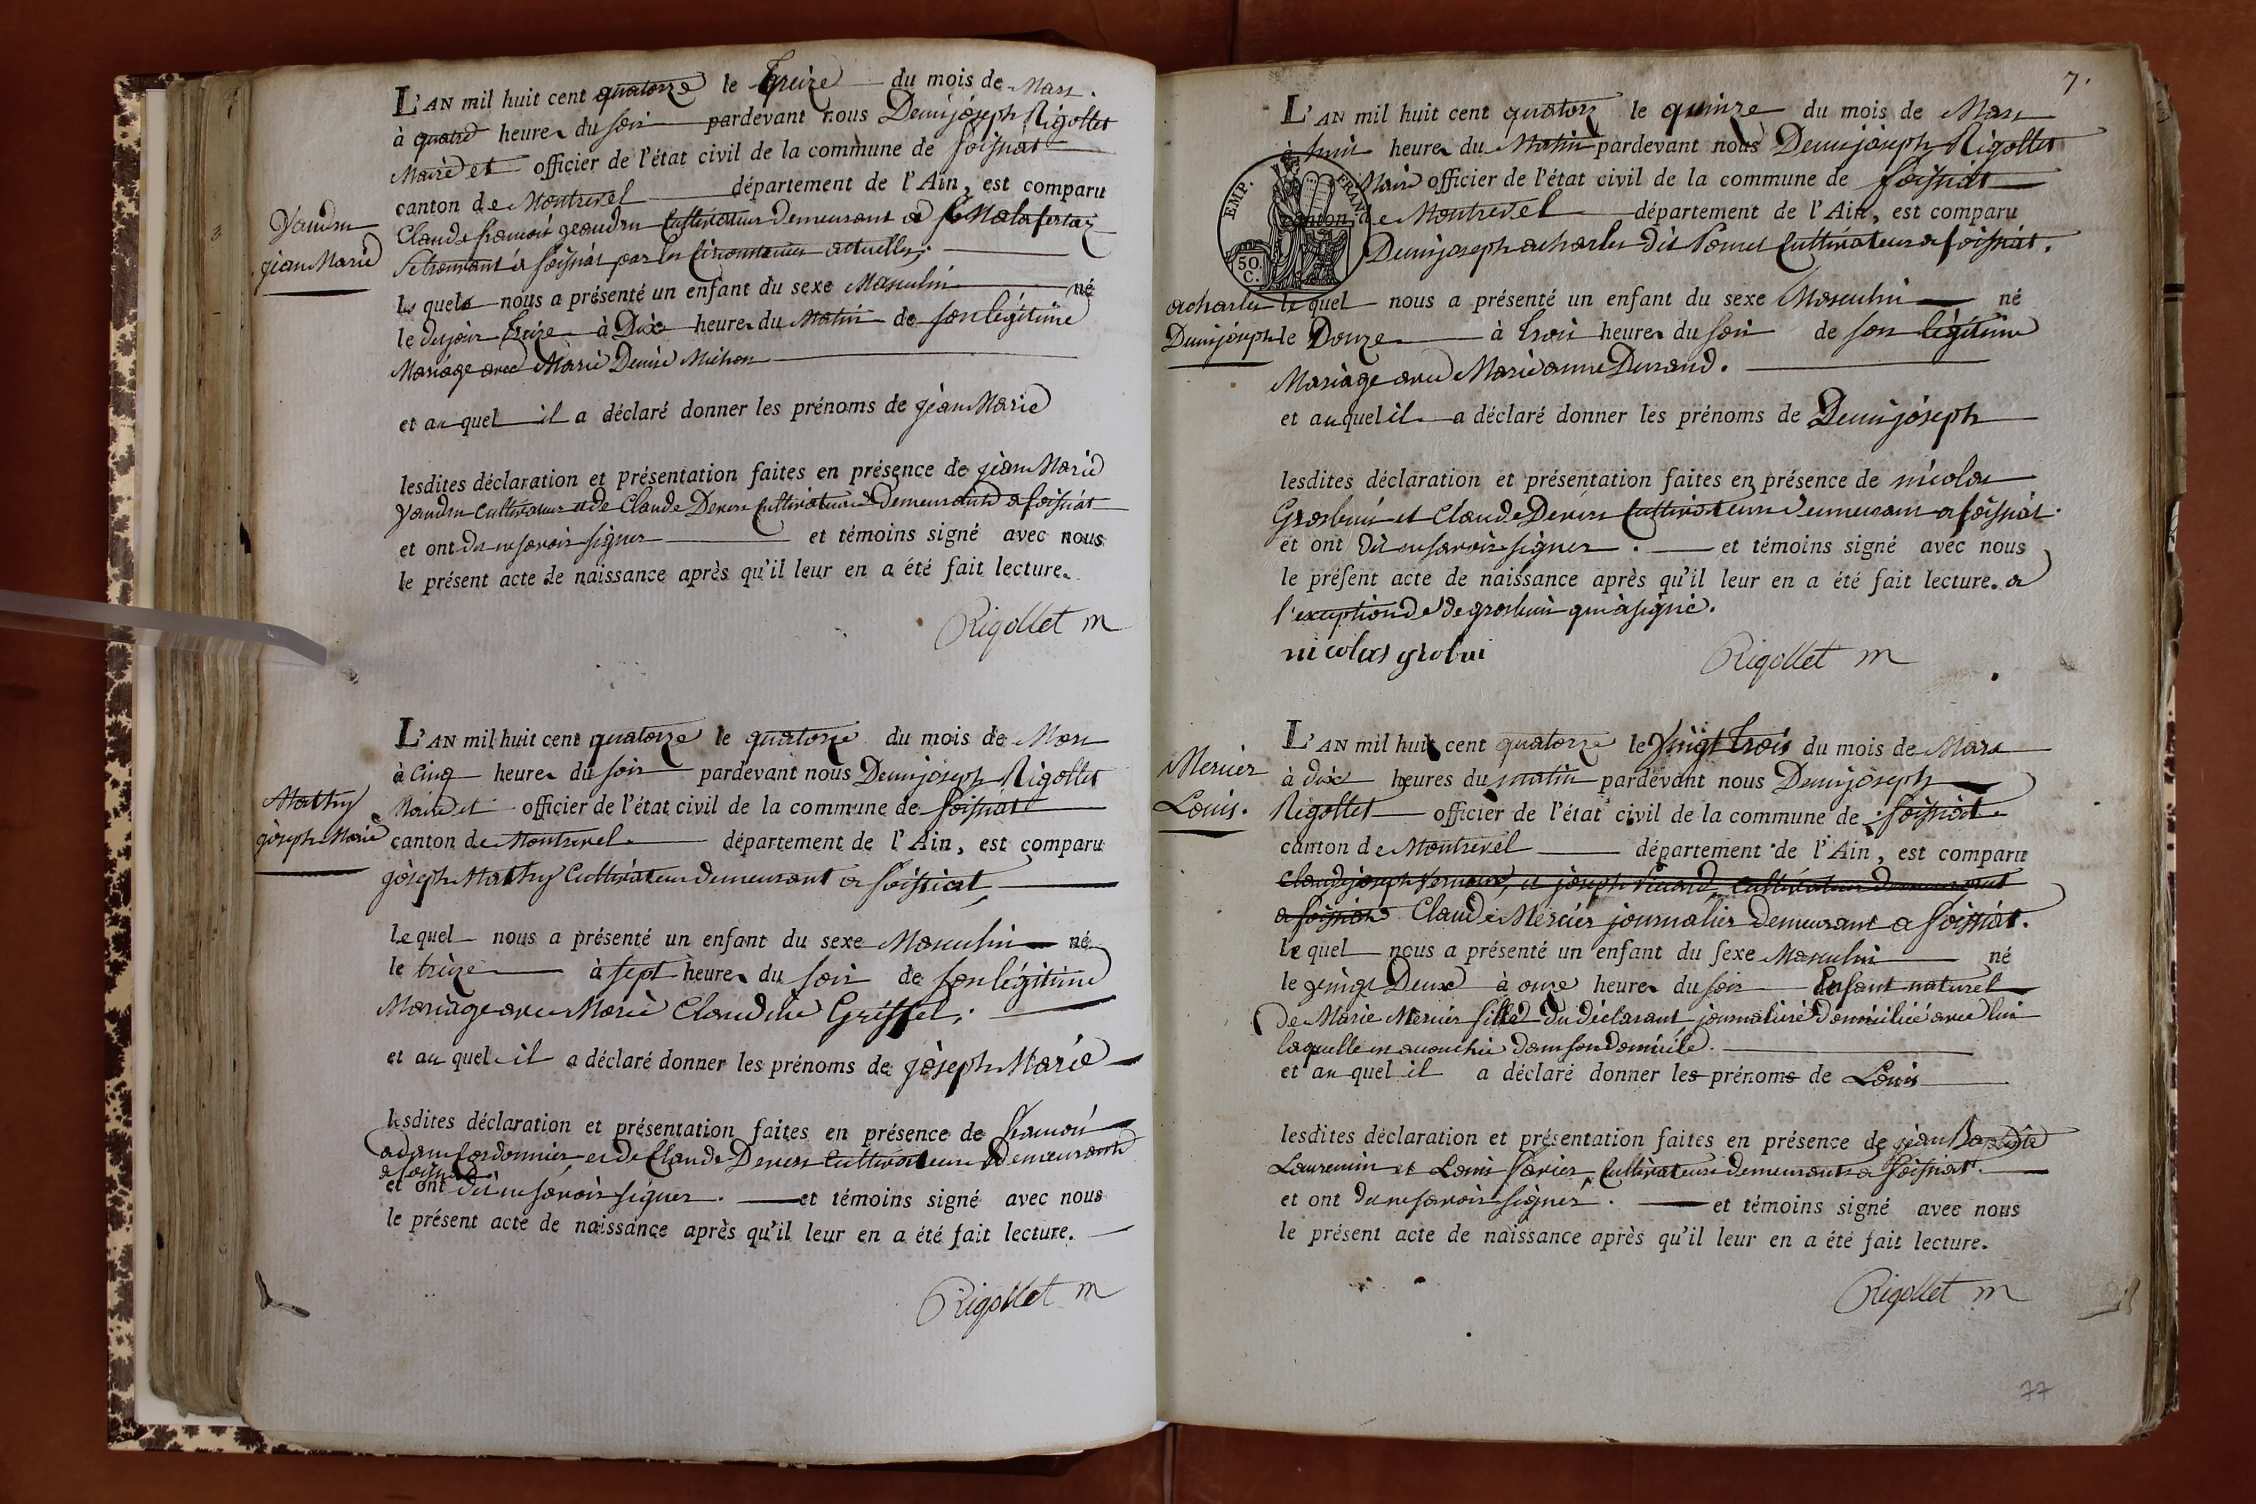 L'AN mil huit cent quatorze le treize du mois de Mars.
à quatre heures du soir pardevant nous Denis joseph Rigollet
Maire et officier de l'état civil de la commune de foissiat
canton de Montrevel département de l'Ain, est comparu
Yandru
jean Marie
Claude françois yeandru Cultivateur demeurant à
Se trouvant à foissiat par les Circonstances actuelles.
lequel nous a présenté un enfant du sexe Masculin né
le du jour treize à Dix heures du Matin de son légitime
Mariage avec Marie Denise Michon
et auquel il a déclaré donner les prénoms de jean Marie
lesdites déclaration et présentation faites en présence de jean Marie
yandru Cultivateur et de Claude Cultivateurs demeurants a foissiat
et ont dit ne savoir signer et témoins signé avec nous
le présent acte de naissance après qu'il leur en a été fait lecture.
Rigollet m
L'AN mil huit cent quatorze le quatorze du mois de Mars
à Cinq heures du soir pardevant nous Denis joseph Rigollet
Maire et officier de l'état civil de la commune de foissiat
Mathy
joseph Marie
canton de Montrevel département de l'Ain, est comparu
joseph Mathy Cultivateur demeurant a foissiat
lequel nous a présenté un enfant du sexe Masculin né
le treize à sept heures du soir de son légitime
Mariage avec Marie Claudine Griffet.
et auquel il a déclaré donner les prénoms de joseph Marie
lesdites déclaration et présentation faites en présence de françois
adam Cordonnier et de Claude Cultivateur demeurants
a foissiat
et ont dit ne savoir signer. et témoins signé avec nous
le présent acte de naissance après qu'il leur en a été fait lecture.
Rigollet m
7.
L'AN mil huit cent quatorze le quinze du mois de Mars
à huit heures du Matin pardevant nous Denis joseph Rigollet
Maire officier de l'état civil de la commune de foissiat
EMP. FRAN.
50 C.
canton de Montrevel département de l'Ain, est comparu
Denis joseph acharles dit Pomet Cultivateur a foissiat.
acharles
Denis joseph
lequel nous a présenté un enfant du sexe Masculin né
le Douze à trois heures du soir de son légitime
Mariage avec Marie anne Durand.
et auquel il a déclaré donner les prénoms de Denis joseph
lesdites déclaration et présentation faites en présence de nicolas
Grosbuis et Claude Cultivateurs demeurant a foissiat.
et ont dit ne savoir signer. et témoins signé avec nous
le présent acte de naissance après qu'il leur en a été fait lecture. a
l'exception de de grosbuis qui a signé.
nicolas grobui
Rigollet m
L'AN mil huit cent quatorze le Vingt trois du mois de Mars
Mercier
Louis.
à dix heures du matin pardevant nous Denis joseph
Rigollet officier de l'état civil de la commune de foissiat
canton de Montrevel département de l'Ain, est comparu
Claude joseph et joseph Cultivateurs demeurant
a foissiat Claude Mercier journalier demeurant a foissiat.
lequel nous a présenté un enfant du sexe Masculin né
le vingt Deux à onze heures du soir Enfant naturel
de Marie Mercier fille du déclarant journalière domiciliée avec lui
laquelle en accouchée dans son domicile.
et auquel il a déclaré donner les prénoms de Louis
lesdites déclaration et présentation faites en présence de jean Baptiste
Laurencin et Louis Cultivateurs demeurants a foissiat.
et ont dit ne savoir signer. et témoins signé avec nous
le présent acte de naissance après qu'il leur en a été fait lecture.
Rigollet m
77